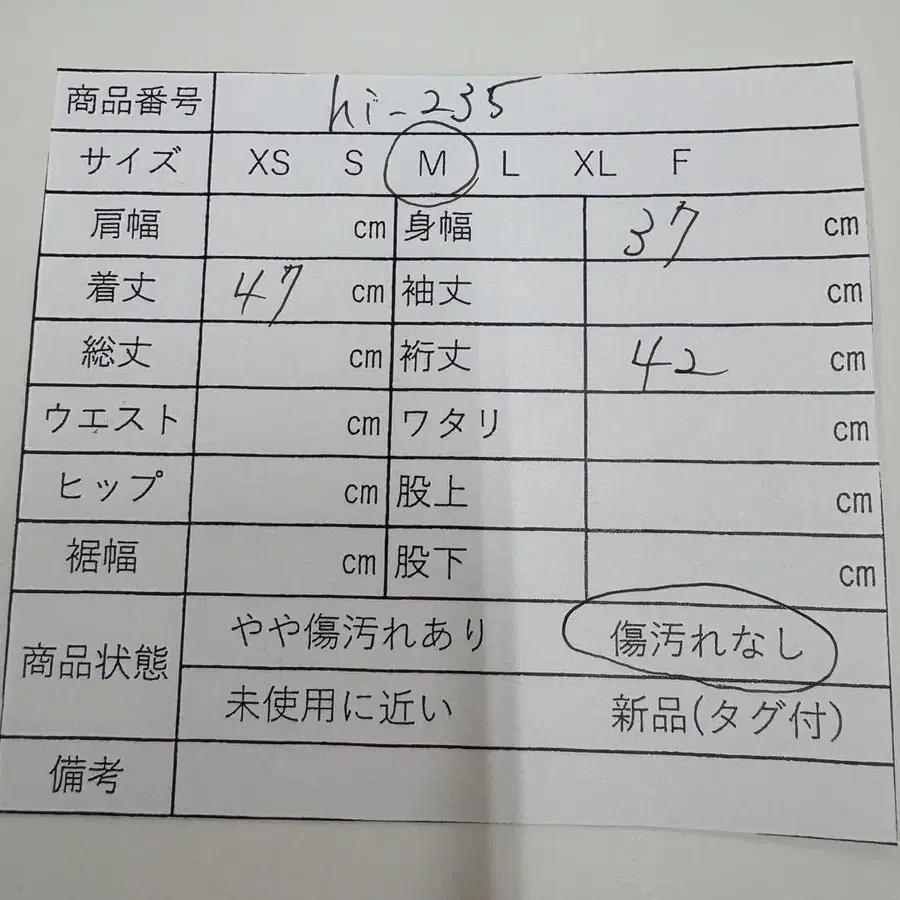 商品番号 hi-235
サイズ XS S M L XL F
肩幅 cm 身幅 37 cm
着丈 47 cm 袖丈 cm
総丈 cm 裄丈 42 cm
ウエスト cm ワタリ cm
ヒップ cm 股上 cm
裾幅 cm 股下 cm
商品状態 やや傷汚れあり 傷汚れなし
未使用に近い 新品(タグ付)
備考